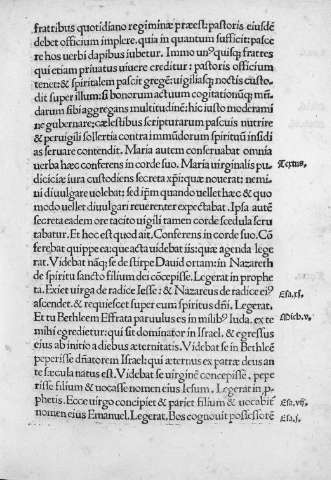 frattibus quotidiano regiminæ præest: pastoris eiusdē
debet officium implere. quia in quantum sufficit: pasce
re hos uerbi dapibus iubetur. Immo un⁹quisq; fratres
qui etiam priuatus uiuere creditur: pastoris officium
tenet: & spiritalem pascit gregē: uigiliasq; noctis custo⸗
dit super illum: si bonorum actuum cogitationūq; mū⸗
darum sibi aggregans multitudinē: hic iusto moderami
ne gubernare: cælestibus scripturarum pascuis nutrire
& peruigili sollertia contra immūdorum spirituū insidi
as seruare contendit. Maria autem conseruabat omnia
uerba hæc conferens in corde suo. Maria uirginalis pu⸗
Textus,
diciciæ iura custodiens secreta xp̄i: quæ nouerat: nemi⸗
ni diuulgare uolebat: sed ip̄m quando uellet hæc & quo
modo uellet diuulgari reuerenter expectabat. Ipsa autē
secreta eadem ore tacito uigili tamen corde scedula scru
tabatur. Et hoc est quod ait. Conferens in corde suo. Cō
ferebat quippe ea: quæ acta uidebat iis: quæ agenda lege
rat. Videbat nāq; se de stirpe Dauid ortam: in Nazareth
de spiritu sancto filium dei cōcepisse. Legerat in prophe
ta. Exiet uirga de radice Iesse: & Nazareus de radice ei⁹
Esa.xj.
ascendet. & requiescet super eum spiritus dn̄i. Legerat.
Et tu Bethleem Effrata paruulus es in milib⁹ Iuda. ex te
Mich.v.
mihi egredietur: qui sit dominator in Israel. & egressus
eius ab initio a diebus æternitatis. Videbat se in Bethleē
peperisse dn̄atorem Israel: qui æternus ex patre deus an
te sæcula natus est. Videbat se uirginē concepisse, pepe⸗
risse filium & uocasse nomen eius Iesum. Legerat in p⸗
phetis. Ecce uirgo concipiet & pariet filium & uocabit̄
Esa.vij.
nomen eius Emanuel. Legerat. Bos cognouit possessorē
Esa.j.